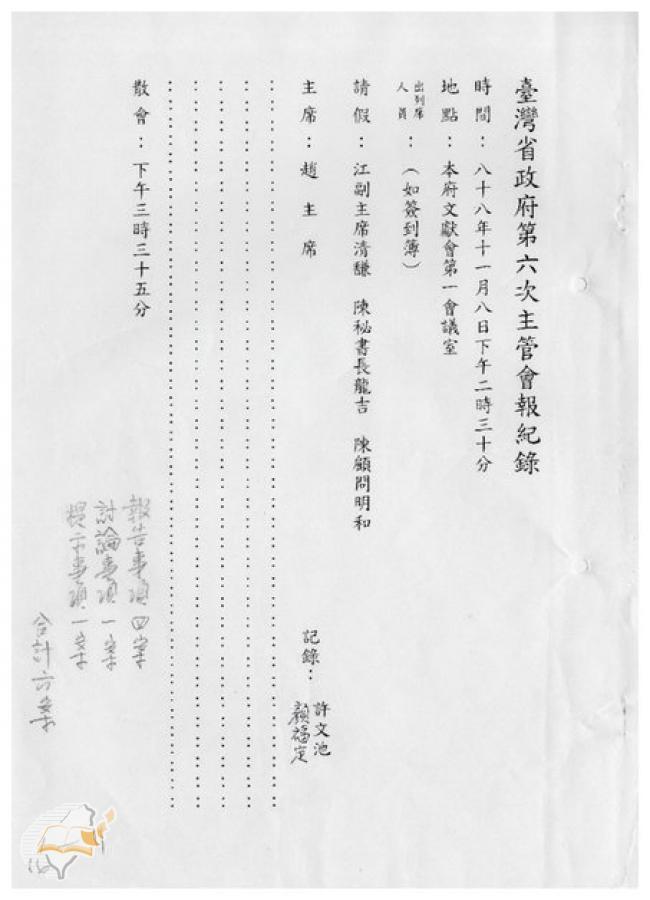 臺灣省政府第六次主管會報紀錄
時間：八十八年十一月八日下午二時三十分
地點：本府文獻會第一會議室
出列席人員：（如簽到簿）
請假：江副主席清馦　陳秘書長龍吉　陳顧問明和
主席：趙主席
記錄：許文池
顏福定
散會：下午三時三十五分
報告事項四案
討論事項一案
提示事項一案
合計六案